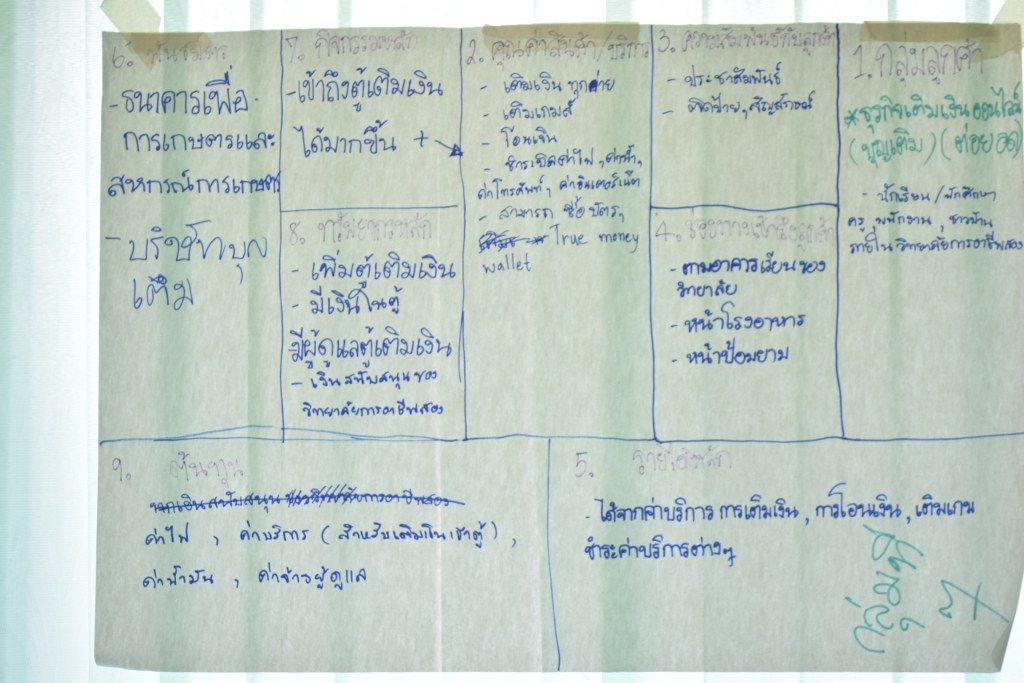 6. พันธมิตร
- ธนาคารเพื่อ
การเกษตรและ
สหกรณ์การเกษตร
- บริษัทบุญ
เติม
7. กิจกรรมหลัก
- เข้าถึงตู้เติมเงิน
ได้มากขึ้น +
8. ทรัพยากรหลัก
- เพิ่มตู้เติมเงิน
- มีเงินในตู้
มีผู้ดูแลตู้เติมเงิน
- เงินสนับสนุนของ
วิทยาลัยการอาชีพสอง
2. คุณค่าสินค้า/บริการ
- เติมเงินทุกค่าย
- เติมเกมส์
- โอนเงิน
- ชำระบิลค่าไฟ, ค่าน้ำ,
ค่าโทรศัพท์, ค่าอินเตอร์เน็ต
- สามารถ ซื้อบัตร,
True money
wallet
3. ความสัมพันธ์กับลูกค้า
- ประชาสัมพันธ์
- ติดป้าย, สัญลักษณ์
4. ช่องทางเข้าถึงลูกค้า
- ตามอาคารเรียนของ
วิทยาลัย
- หน้าโรงอาหาร
- หน้าป้อมยาม
1. กลุ่มลูกค้า
*ธุรกิจเติมเงินออนไลน์
(บุญเติม) (ต่อยอด)
- นักเรียน/นักศึกษา
ครู, พนักงาน, ชาวบ้าน
ภายในวิทยาลัยการอาชีพสอง
9. ต้นทุน
ค่าไฟ, ค่าบริการ (สำหรับเติมเงินเข้าตู้),
ค่าน้ำมัน, ค่าจ้างผู้ดูแล
5. รายได้หลัก
- ได้จากค่าบริการ การเติมเงิน, การโอนเงิน, เติมเกม
ชำระค่าบริการต่างๆ
กลุ่มที่